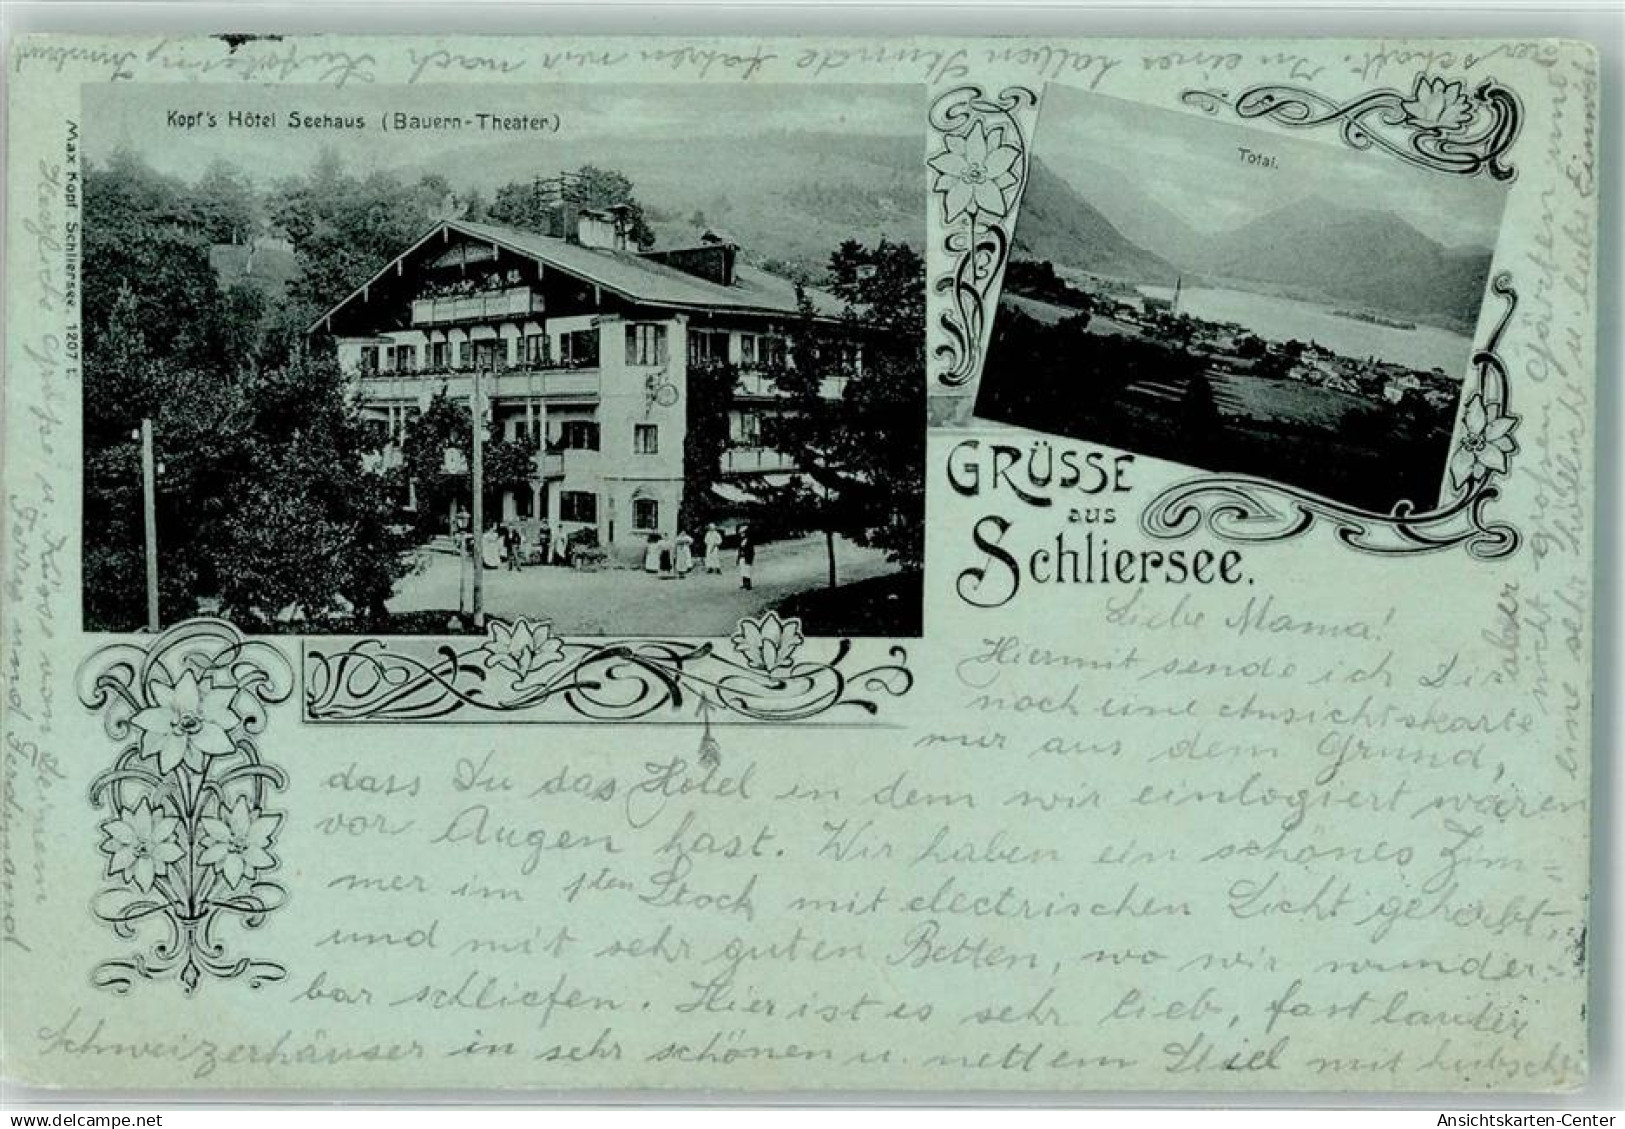 Kopf's Hôtel Seehaus (Bauern-Theater.)
Total.
Max Kopf Schliersee. 1207 t.
GRÜSSE
aus
Schliersee.
Liebe Mama!
Hiermit sende ich Dir
noch eine Ansichtskarte
nur aus dem Grund,
dass Du das Hotel in dem wir einlogiert waren
vor Augen hast. Wir haben ein schönes Zim
mer im 1ten Stock mit electrischen Licht gehabt,
und mit sehr guten Betten, wo wir wunder-
bar schliefen. Hier ist es sehr lieb, fast lauter
Schweizerhäuser in sehr schönen u. nettem Stiel mit hübschen
aber
nicht großen Gärten
eine sehr höfliche u. liebe Einwoh
nerschaft. In einer halben Stunde fahren wir nach
Herzliche Grüße u. Küsse von Deinem
Ferry und Ferdinand
Ansichtskarten-Center